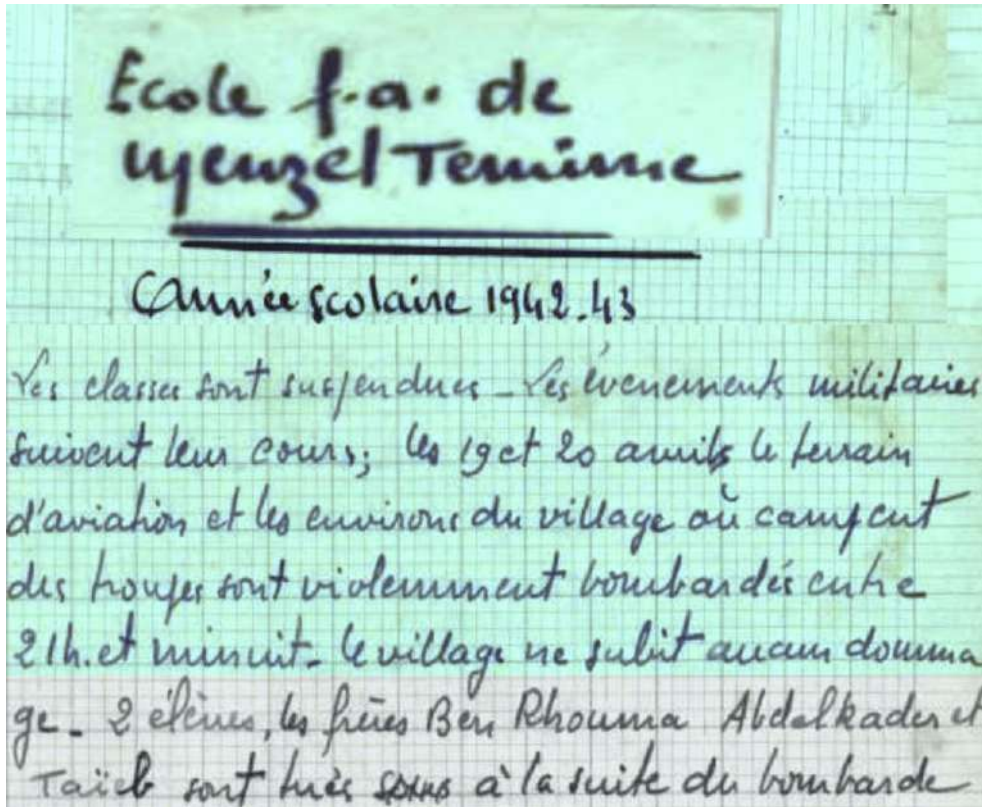 Ecole f.a. de
Menzel Temime
Année scolaire 1942-43
Les classes sont suspendues - Les évènements militaires
suivent leur cours; les 19 et 20 avril le terrain
d'aviation et les environs du village où campent
des troupes sont violemment bombardés entre
21h. et minuit - le village ne subit aucun domma
ge - 2 élèves, les frères Ben Rhouma Abdelkader et
Taïeb sont tués à la suite du bombarde